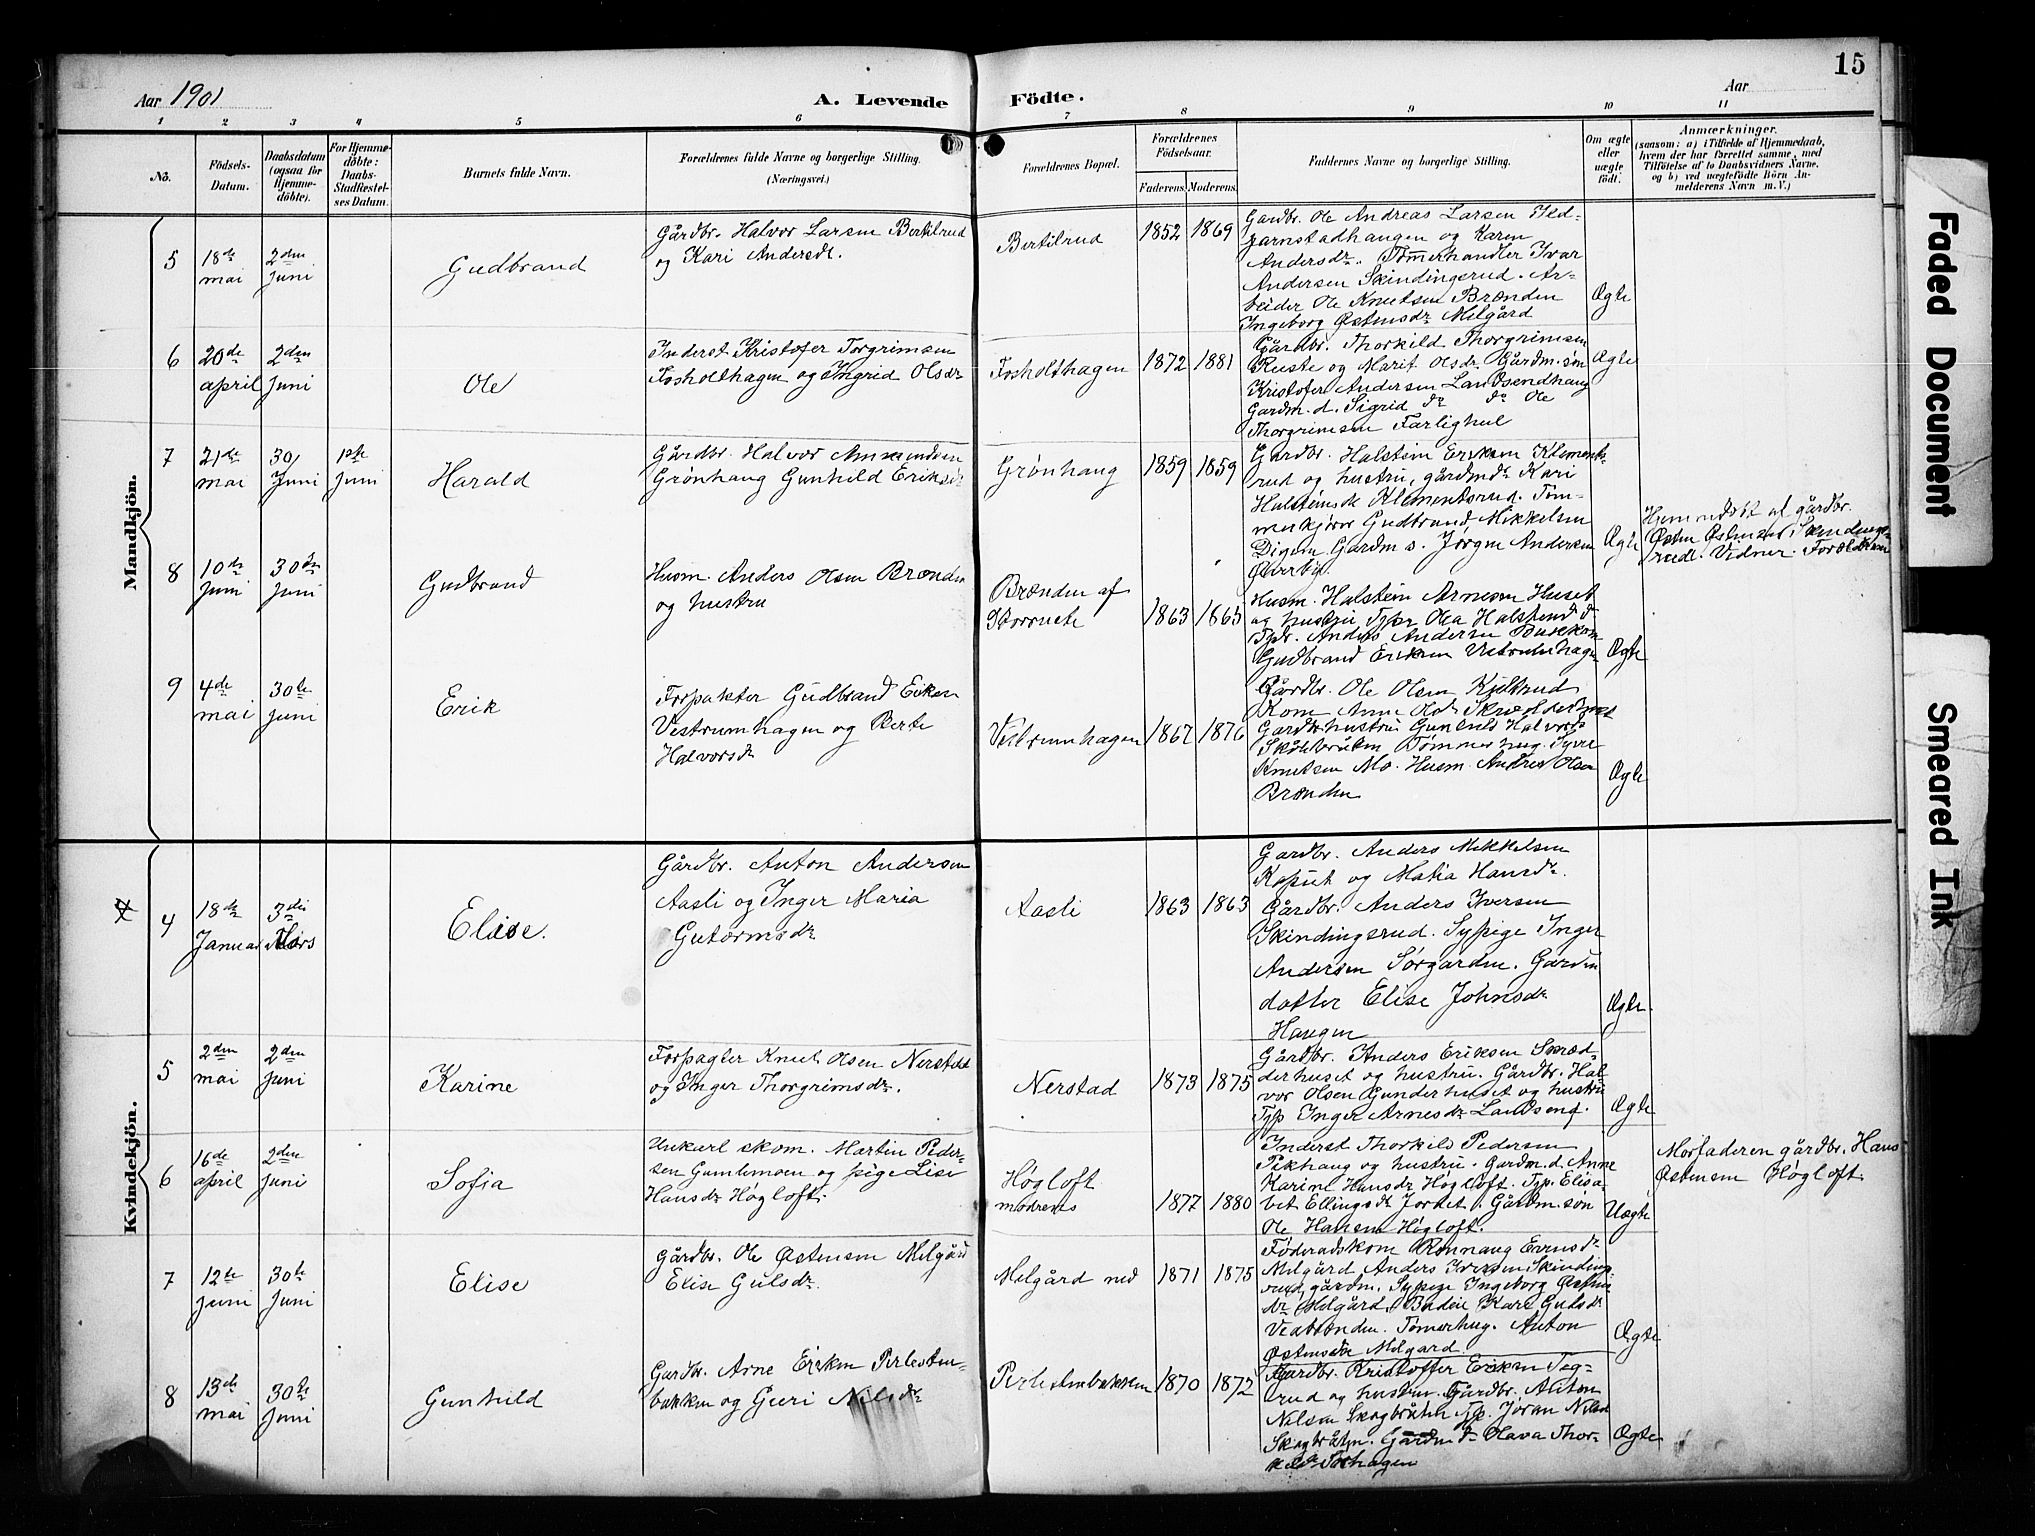 Aar 1901
A. Levende Födte.
Aar
15
1 2 3 4 5 6 7 8 9 10 11
No.
Födsels-
Datum.
Daabsdatum
(ogsaa for
Hjemme-
döbte).
For Hjemme-
döbte:
Daabs-
Stadfæstel-
ses Datum.
Barnets fulde Navn.
Forældrenes fulde Navne og borgerlige Stilling.
(Næringsvei.)
Forældrenes Bopæl.
Forældrenes
Födselsaar.
Faderens. Moderens.
Faddernes Navne og borgerlige Stilling.
Om ægte
eller
uægte
födt.
Anmærkninger.
(saasom: a) i Tilfælde af Hjemmedaab,
hvem der har forrettet samme, med
Tilföielse af to Daabsvidners Navne.
og b) ved uægtefödte Börn An-
melderens Navn m.V.)
Mandkjön.
5
18de
mai
2den
Juni
Gudbrand
Gårdbr. Halvor Larsen Bertilrud
og Kari Andersdt.
Bertilrud
1852
1869
Gardbr. Ole Andreas Larsen
og Karen
Andersdr. Tømerhandler Ivar
Andersen Skindingsrud. Ar-
beider Ole Knutsen Brænden
Ingeborg Østensdr Milgård
Ægte
6
20de
april
2den
Juni
Ole
Inderst Kristofer Torgrimsen
Fosholthagen og Ingrid Olsdr
Fosholthagen
1872
1881
Gårdbr. Thorkild Thorgrimsen
Ruste og Marit Olsdr. Gårdm. søn
Kristofer Andersen Landsendhaug
Gardm. d. Sigrid dr do Ole
Thorgrimsen Farlighul
Ægte
7
21de
mai
30
Juni
1ste
Juni
Harald
Gårdbr. Halvor Amundsen
Grønhaug Gunhild Eriksdr
Grønhaug
1859
1859
Gårdbr. Halstein Eriksen Klements-
rud og hustru, gårdmdr Kari
Halsteinsdr Klementsrud. Tøm-
merkjører Gudbrand Mikkelsen
Digern. Gardm s. Jørgen Andersen
Øverby.
Ægte
Hjemmedøbt af gårdbr.
Østen Østensen Skindings-
rud. Vidner. Forældrene
8
10de
Juni
30te
Juni
Gudbrand
Husm. Anders Olsen Brænden
og hustru
Brænden af
1863
1865
Husm. Halstein Arnesen Huset
og hustru Tjpr Olea Halstensd dr
Tpr. Anders Andersen
Gudbrand Eriksen Vestrumhagen
Ægte
9
4de
mai
30te
Juni
Erik
Forpakter Gudbrand Eriksen
Vestrumhagen og Berte
Halvorsdr
Vestrumhagen
1867
1876
Gårdbr. Ole Olsen Kjiltrud
Kone Anne Olsdr Skræderhuset
Gardbrhustru Gunhild Halvorsdr
Skålsbråten Tømmerhug. Syver
Knutsen Mo. Husm. Anders Olsen
Brænden
Ægte
Kvindekjön.
4
18de
Januar
3die
Mars
Elise.
Gårdbr. Anton Andersen
Aasli og Inger Maria
Gutormsdr
Aasli
1863
1863
Gardbr. Anders Mikkelsen
Koput og Matia Hansdr.
Gårdbr. Anders Iversen
Skindingsrud. Sypige Inger
Andersen Sørgarden. Garden
datter Elise Johnsdr
Haugen
Ægte.
5
2den
mai
2den
Juni
Karine
Forpagter Knut Olsen Nerstad
og Inger Thorgrimsdr.
Nerstad
1873
1875
Gårdbr. Anders Eriksen Skræd-
derhuset og hustru. Gårdbr. Hal-
vor Olsen Gunderhuset og hustru
Tjp Inger Arnesdr Landsend.
Ægte
6
16de
april
2den
Juni
Sofia
Unkarl skom. Martin Peder-
sen Gamlemoen og pige Lise
Hansdr Høgloft.
Høgloft
modrens
1877
1880
Inderst Thorkild Pedersen
Pikhaug og hustru. Gardm. d. Anne
Karine Hansdr Høgloft. Tjp. Elisa-
bet Ellingsdt Jordet. Gårdm. søn
Ole Hansen Høgloft.
Uægte
Morfaderen gårdbr. Hans
Østensen Høgloft.
7
12te
Juni
30te
Juni
Elise
Gårdbr. Ole Østensen Milgård
Elise Gulsdr.
Milgård ned
1871
1875
Føderådskone Rønnaug Evensdr
Milgård Anders Iversen Skindings
rud, gårdm. Sypige Ingeborg Østens
dr Milgård. Budeie Kari Gulsdr
Vedbrænden. Tømerhug. Anton
Østensen Milgard
Ægte
8
13de
mai
30te
Juni
Gunhild
Gardbr. Arne Eriksen Perlesten-
bakken og Guri Nilsdr
Perlestenbakken
1870
1872
Gardbr. Kristoffer Eriksen Teg-
rud og hustru. Gårdbr. Anton
Nilsen Skogbråten Tjp. Jøran Nilsd
Skogbråten. Gårdm dr Olava Thor-
Ægte
Faded Document
Smeared Ink